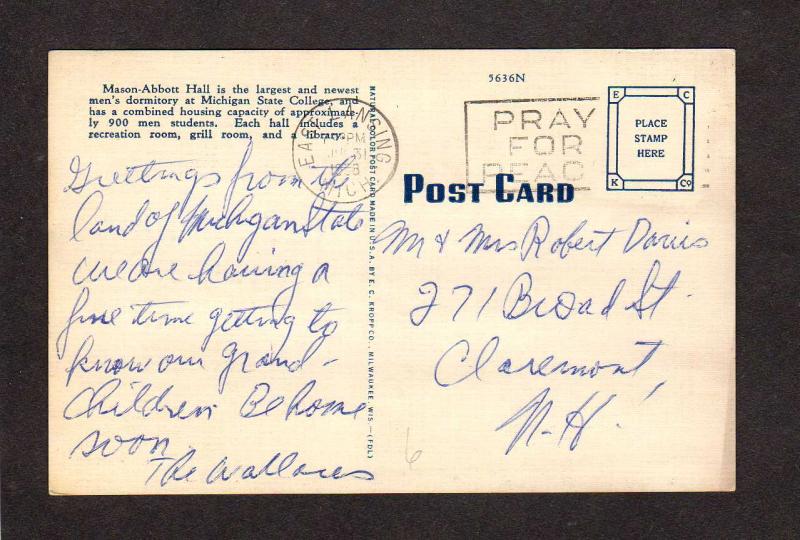 Mason-Abbott Hall is the largest and newest
men's dormitory at Michigan State College, and
has a combined housing capacity of approximate-
ly 900 men students. Each hall includes a
recreation room, grill room, and a library.
Greetings from the
land of Michigan State
We are having a
fine time getting to
know our grand-
children. Be home
soon.
The Wallaces
NATURAL COLOR POST CARD MADE IN U.S.A. BY E. C. KROPP CO., MILWAUKEE, WIS.—(FDL)
EAST LANSING
PM
31
MICH
5636N
PRAY
FOR
PEAC
E C
PLACE
STAMP
HERE
K Co
POST CARD
Mr & Mrs Robert Davis
271 Broad St.
Claremont,
N.H.
6